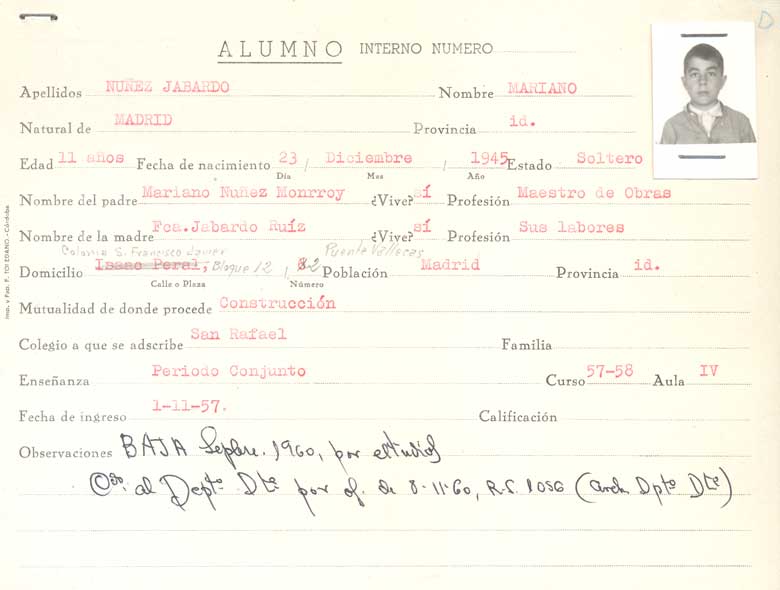 D
ALUMNO INTERNO NUMERO
Apellidos NUÑEZ JABARDO Nombre MARIANO
Natural de MADRID Provincia id.
Edad 11 años Fecha de nacimiento 23 / Diciembre / 1945 Estado Soltero
Día Mes Año
Nombre del padre Mariano Nuñez Monrroy ¿Vive? sí Profesión Maestro de Obras
Nombre de la madre Fca.Jabardo Ruíz ¿Vive? sí Profesión Sus labores
Colonia S. Francisco Javier Puente Vallecas
Domicilio Isaac Peral, Bloque 12 , 2 Población Madrid Provincia id.
Calle o Plaza Número
Mutualidad de donde procede Construcción
Colegio a que se adscribe San Rafael Familia
Enseñanza Periodo Conjunto Curso 57-58 Aula IV
Fecha de ingreso 1-11-57. Calificación
Observaciones BAJA Sepbre. 1960, por estudios
al Deptº Dtº por of. de 8-11-60, R.S. 1056 (Arch. Dptº Dtº)
Imp. y Pap. F. TOLEDANO.-Córdoba